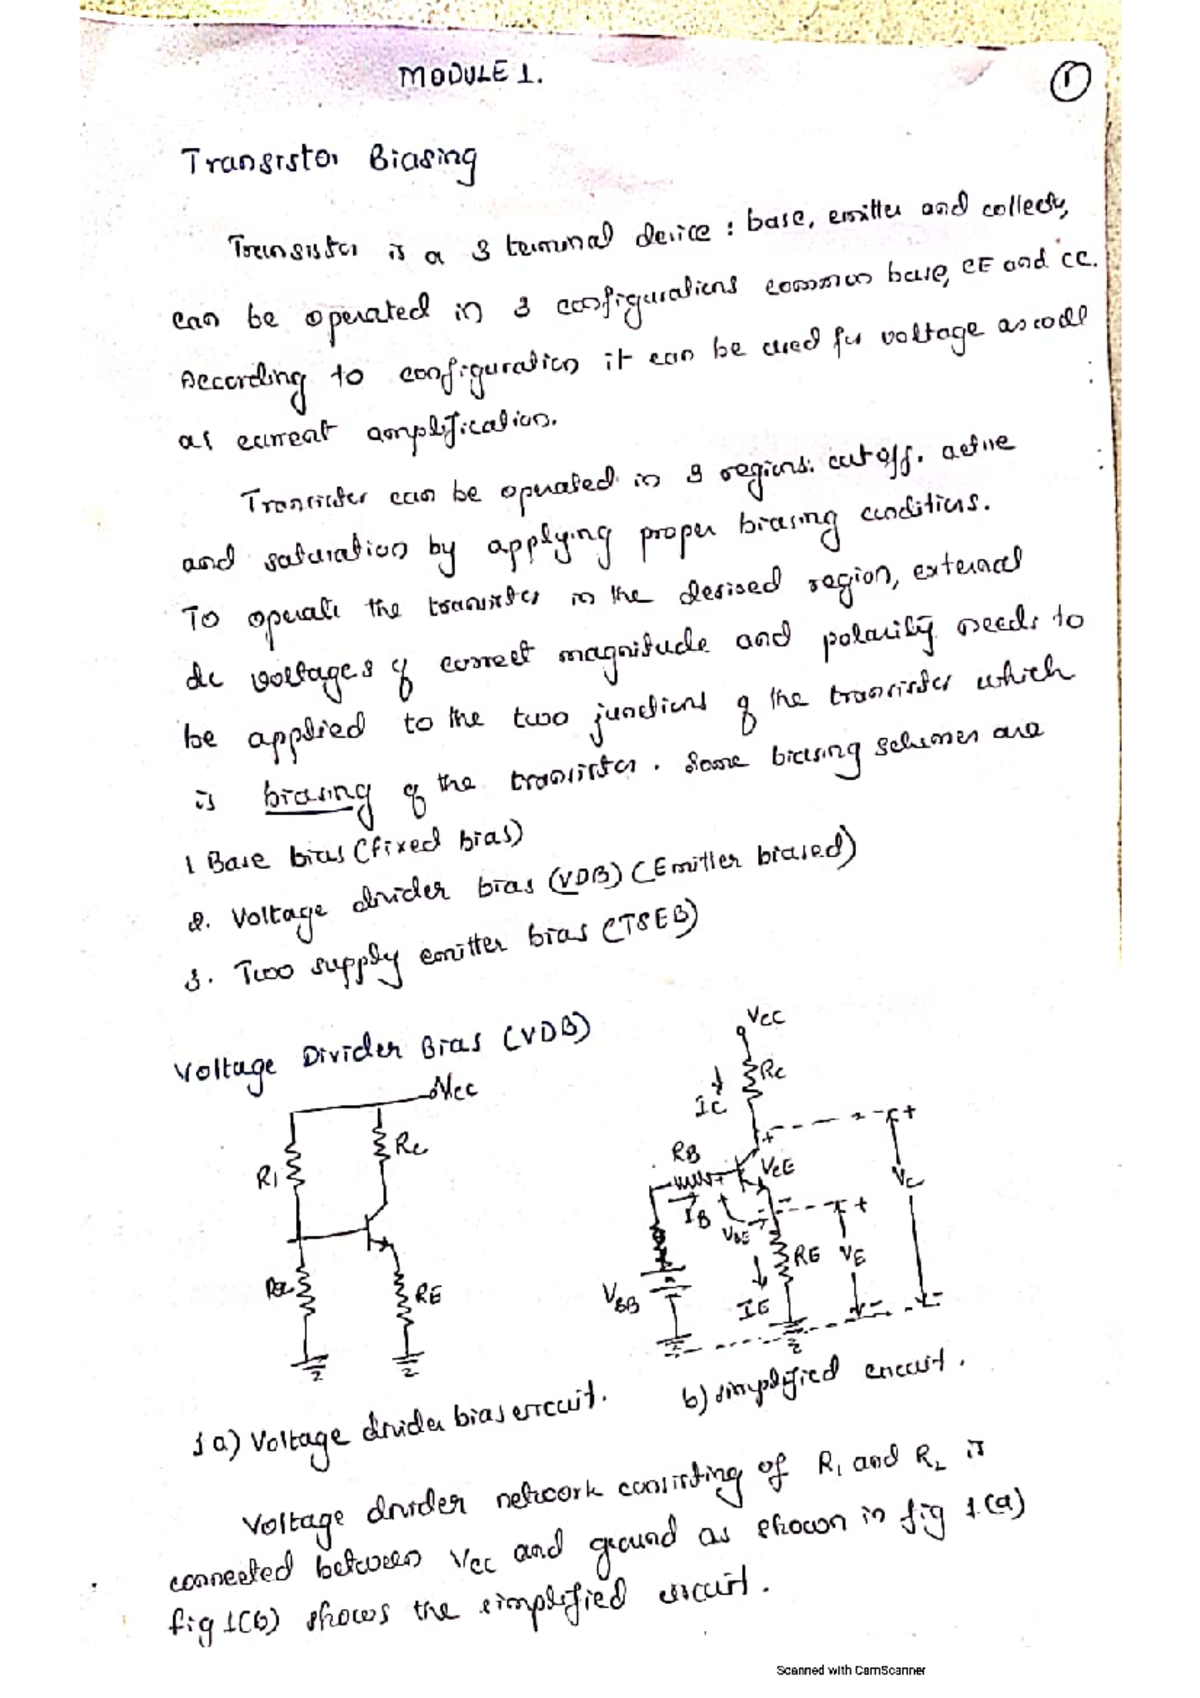 MODULE 1.
1
Transistor Biasing
Transistor is a 3 terminal device : base, emitter and collector,
can be operated in 3 configurations common base, CE and CC.
According to configuration it can be used for voltage as well
as current amplification.
Transistor can be operated in 3 regions: cutoff, active
and saturation by applying proper biasing conditions.
To operate the transistor in the desired region, external
dc voltages of correct magnitude and polarity needs to
be applied to the two junctions of the transistor which
is biasing of the transistor. Some biasing schemes are
1 Base bias (fixed bias)
2. Voltage divider bias (VDB) (Emitter biased)
3. Two supply emitter bias (TSEB)
Voltage Divider Bias (VDB)
VCC
RC
R1
R2
RE
VCC
RC
IC
+
RB
VCE
+
VC
IB
VBE
+
RE
VE
VBB
IE
1 a) Voltage divider bias circuit.
b) simplified circuit.
Voltage divider network consisting of R1 and R2 is
connected between VCC and ground as shown in fig 1.(a)
fig 1(b) shows the simplified circuit.
Scanned with CamScanner